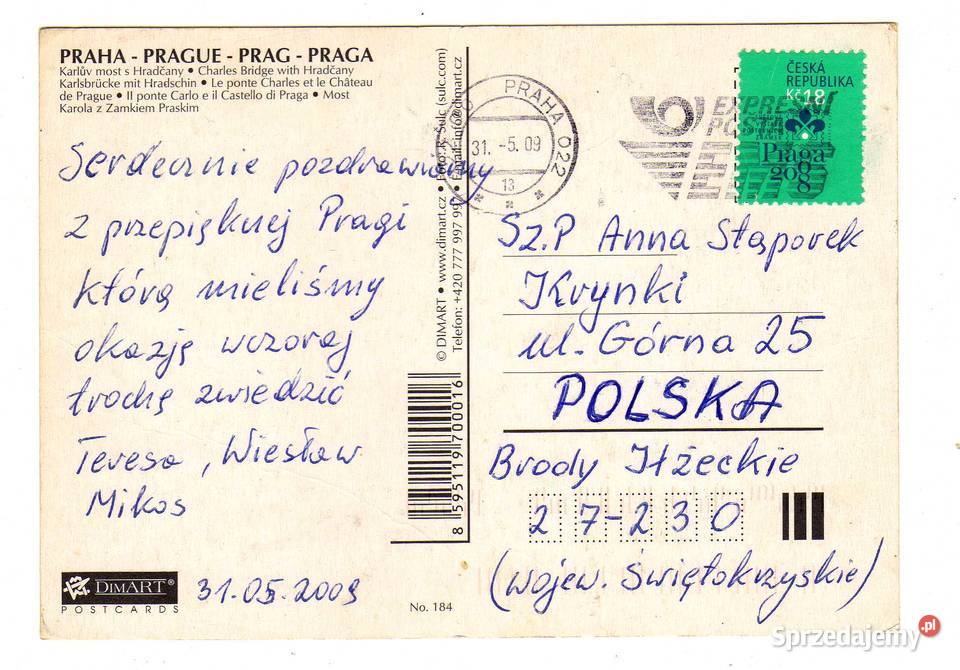 PRAHA - PRAGUE - PRAG - PRAGA
Karlův most s Hradčany • Charles Bridge with Hradčany
Karlsbrücke mit Hradschin • Le ponte Charles et le Château
de Prague • Il ponte Carlo e il Castello di Praga • Most
Karola z Zamkiem Praskim
Serdecznie pozdrawiamy
z przepięknej Pragi
którą mieliśmy
okazję wczoraj
trochę zwiedzić
Teresa, Wiesław
Mikos
31.05.2009
DIMART®
POSTCARDS
No. 184
© DIMART • www.dimart.cz • Foto: K. Šulc (sulc.com)
Telefon: +420 777 997 997 • E-mail: info@dimart.cz
8 595119 700016
PRAHA 022
31. -5. 09
13
EXPRESNÍ
EMS
ČESKÁ
REPUBLIKA
Kč 18
Praga
2008
Sz.P Anna Stąporek
Krynki
ul. Górna 25
POLSKA
Brody Iłżeckie
27-230
(wojew. Świętokrzyskie)
Sprzedajemy.pl